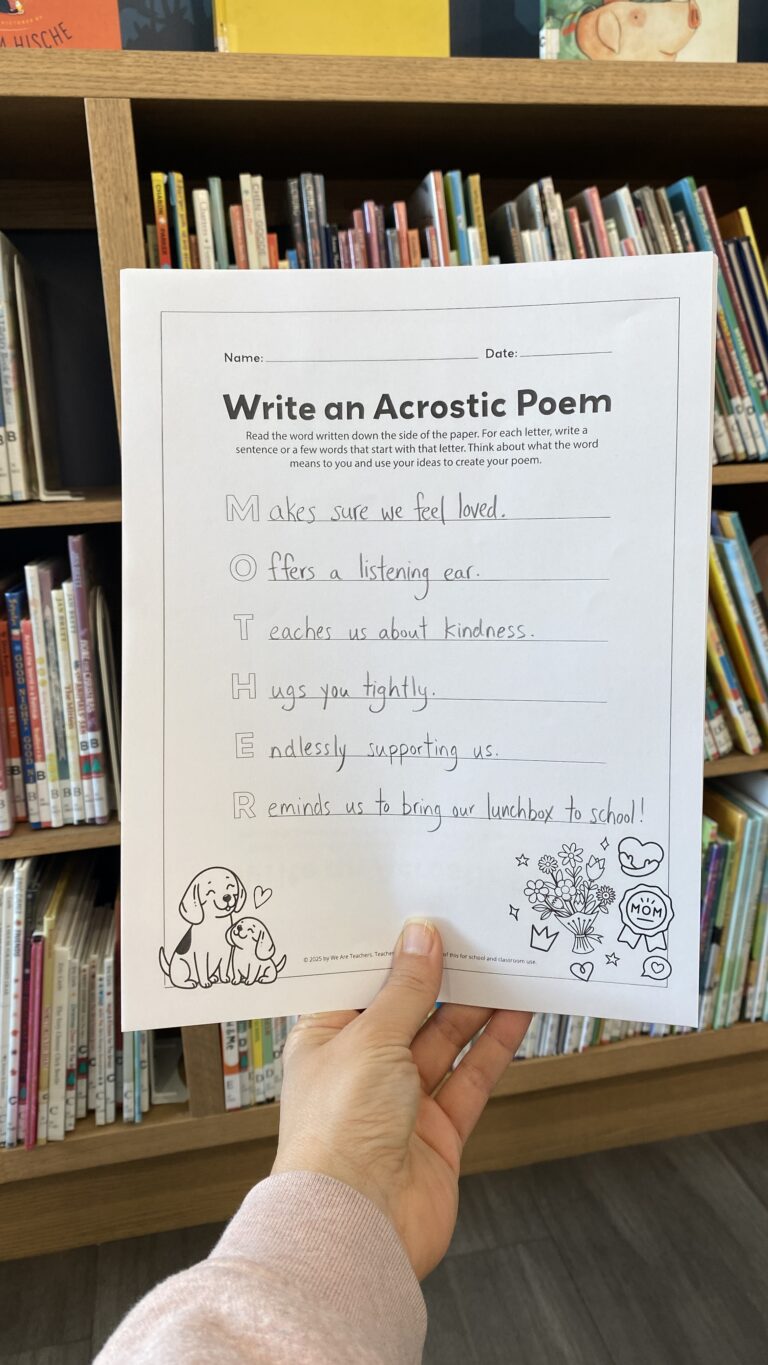 HISCHE
Name:
Date:
Write an Acrostic Poem
Read the word written down the side of the paper. For each letter, write a
sentence or a few words that start with that letter. Think about what the word
means to you and use your ideas to create your poem.
Makes sure we feel loved.
Offers a listening ear.
Teaches us about kindness.
Hugs you tightly.
Endlessly supporting us.
Reminds us to bring our lunchbox to school!
MOM
© 2025 by We Are Teachers.
of this for school and classroom use.